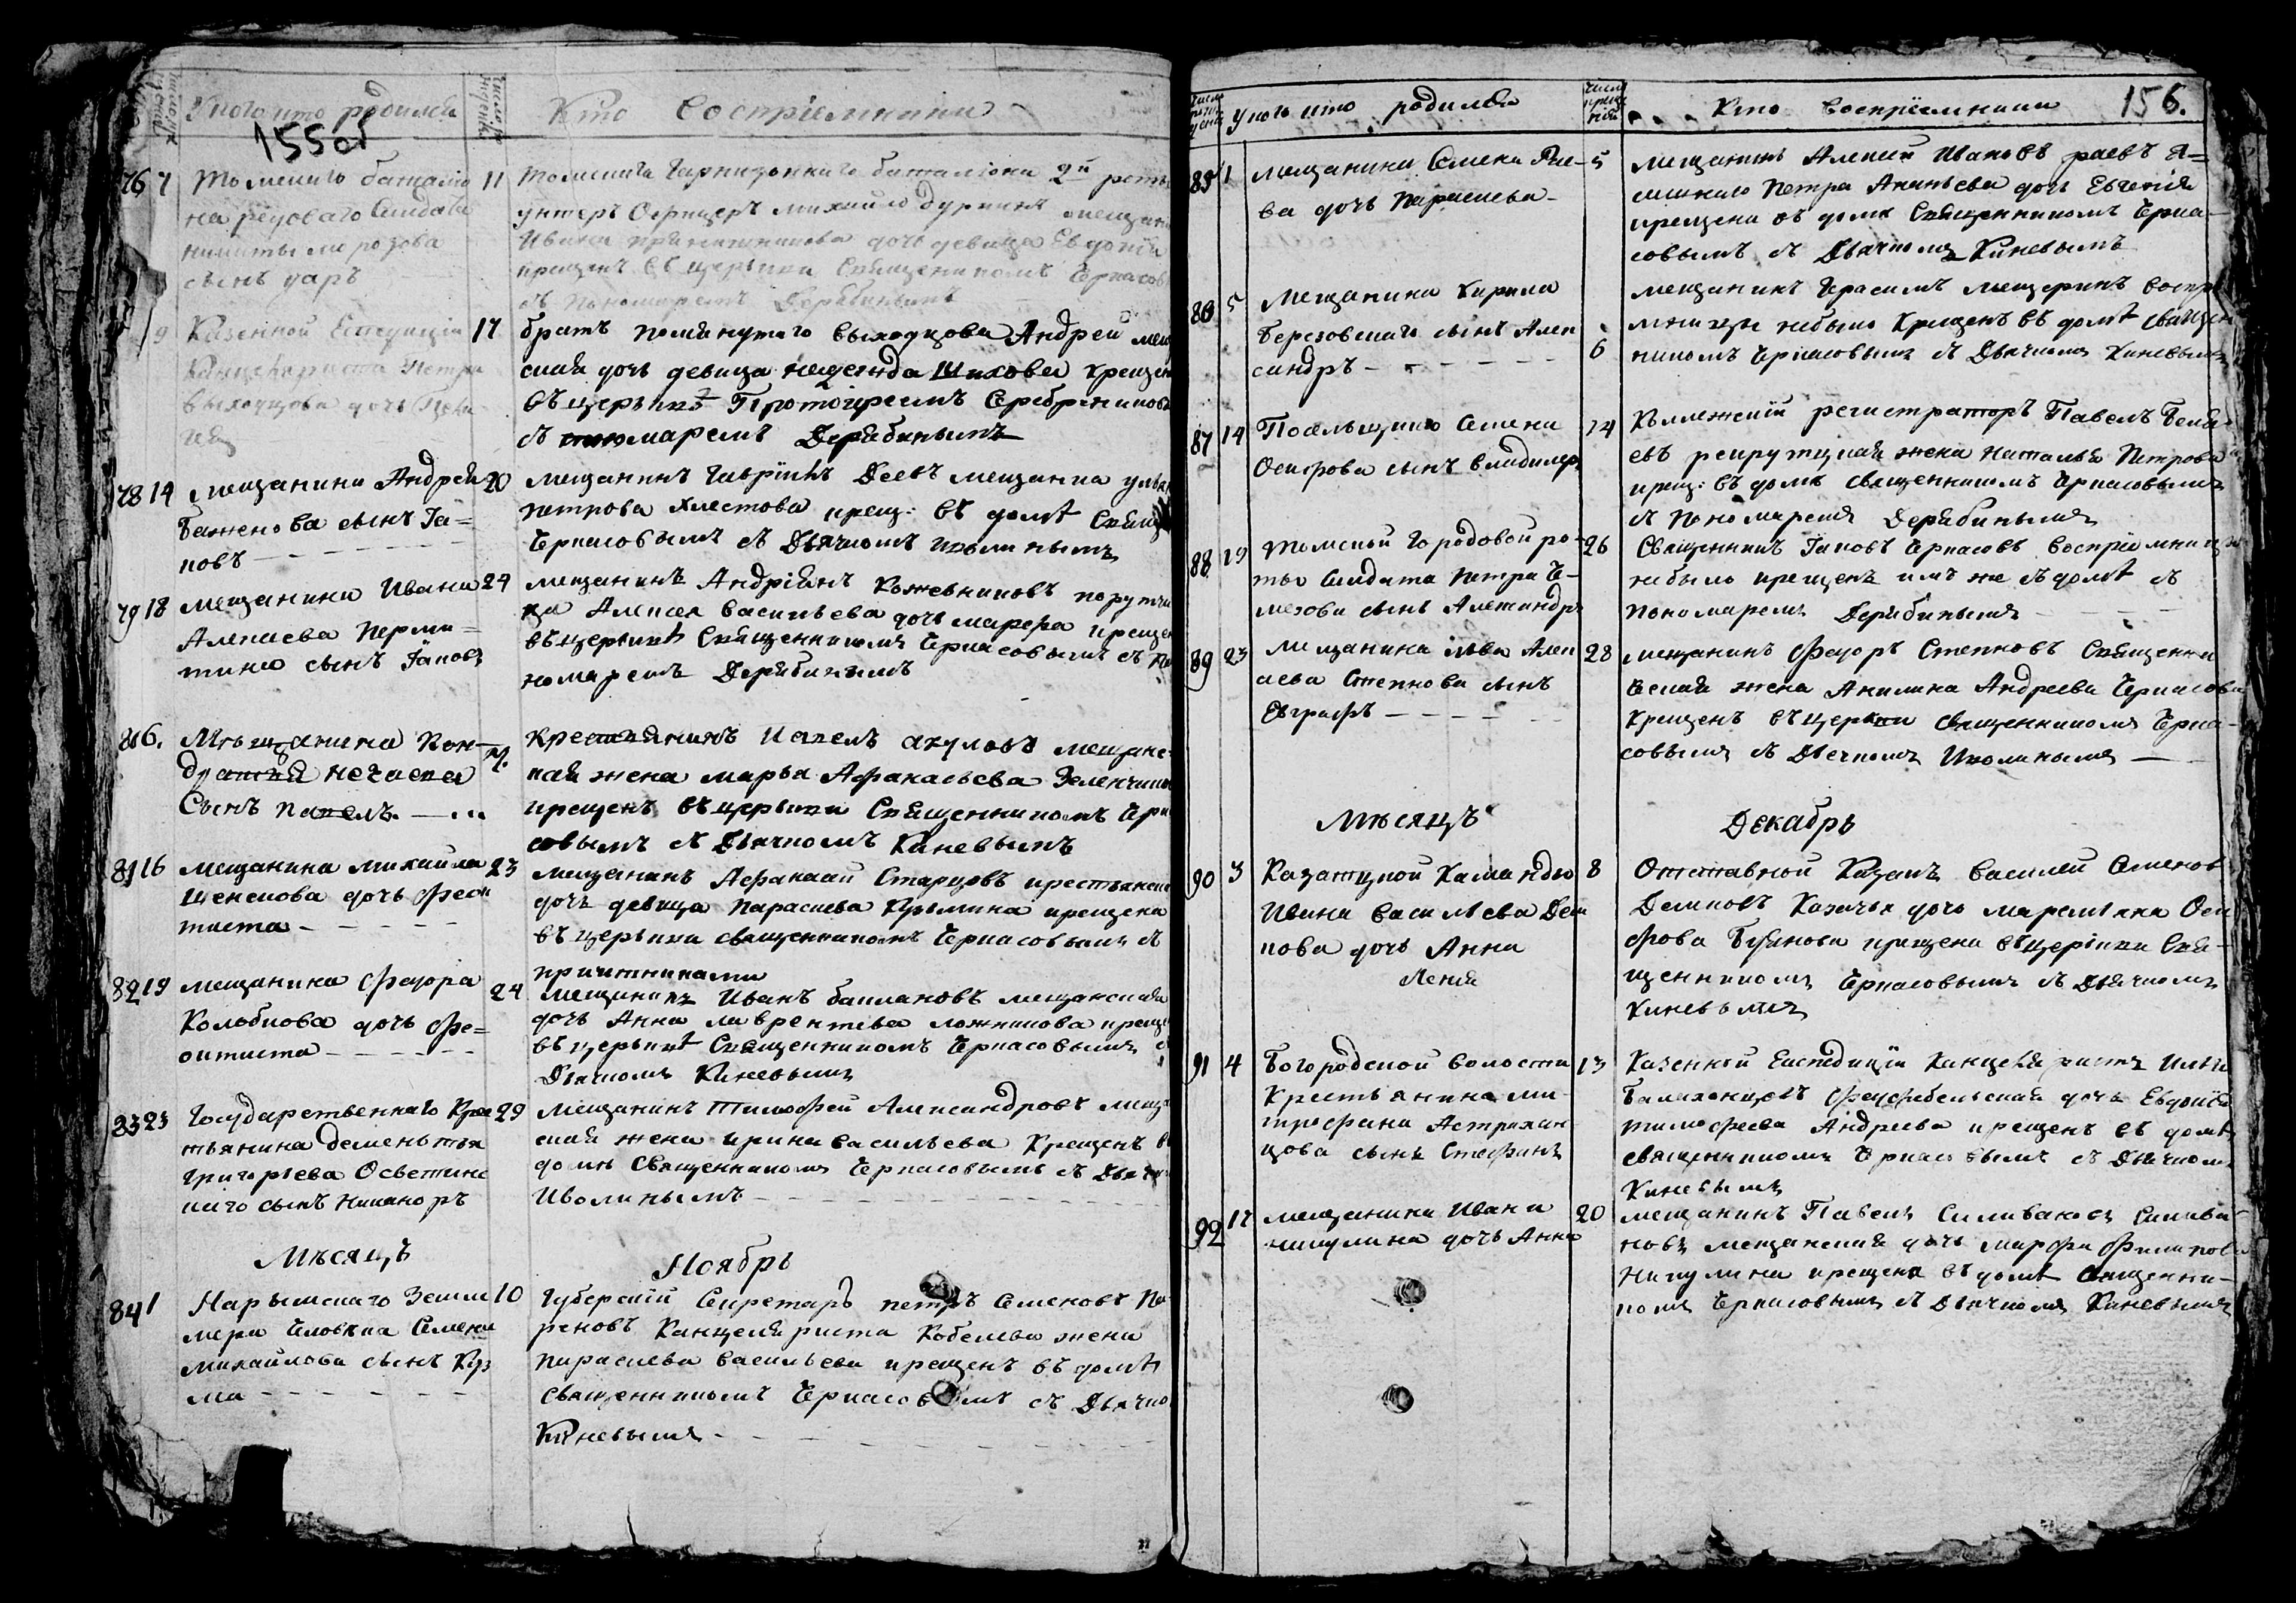 У кого кто родился
Кто восприемники
155 об
76 7 Томскаго баталио 11
на рядоваго Солдата
никиты морозова
сынъ
Томскаго Гарнизоннаго баталіона 2й роты
унтеръ Офицеръ михайло дурнинъ мещани
Ивана дочь девица Евдокія
крещенъ въ церькви Священникомъ Черкасов
съ пономаремъ Дерябинымъ
9 Казенной Експедиціи 17
Канцеляриста Петра
выходцова дочь
братъ помянутаго выходцова Андрей мещ
ская дочь девица надежда крещен
въ церьквѣ Протоиреемъ Серебрениковы
съ пономаремъ Дерябинымъ
78 14 Мещанина Андрея 20
Баженова сынъ Іа=
ковъ
мещанинъ Гаврiилъ Деевъ мещанка улья
петрова хлестова крещ: въ домѣ Свящ
Черкасовымъ съ Дьячкомъ Иволинымъ
79 18 мещанина Ивана 24
Алексеева Перми=
тина сынъ Іаковъ
мещанинъ Андріянъ Кожевниковъ порутчи
ка Алексея васильева дочь марфа крещен
въ церьквѣ Священникомъ Черкасовымъ съ По
номаремъ Дерябинымъ
80 6. Мѣщанина Кон-
дратья нечаева
Сынъ павелъ.
крестьянинъ Павелъ акуловъ мещанс-
кая жена марья Афанасьева Зеленчико
крещенъ въ церькви Священникомъ Черк
совымъ съ Дьячкомъ Киневымъ
81 16 мещанина михаила 23
Щенснова дочь феок
тиста
мещанинъ Афанасий Старцовъ крестьянск
дочь девица Параскева Кузьмина крещена
въ церькви священникомъ Черкасовымъ съ
причитниками
82 19 мещанина Федора 24
Колобкова дочь фе=
октиста
мещанинъ Иванъ баклановъ мещанская
дочь Анна лаврентева ложникова креще
въ церьквѣ Священникомъ Черкасовымъ с
Дьячкомъ Киневымъ
83 23 Государственнаго Крес 29
тьянина дементья
Григорьева Осветинс
каго сынъ Никаноръ
мещанинъ Тимофей Александровъ меща
ская жена ирина васильева Крещенъ в
домѣ Священникомъ Черкасовымъ съ Дьячк
Иволинымъ
Мѣсяцъ Ноябрь
84 1 Нарымскаго Земле 10
мера Человека Семена
михаилова сынъ Куз
ма
Губерскій Секретарь петръ Семеновъ По
реновъ Канцеляриста Кобелева жена
параскева васильева крещенъ въ домѣ
священникомъ Черкасовымъ съ Дьячко
Киневымъ
У кого кто родился
Кто восприемники 156.
85 1 мещанина Семена Рае- 5
ва дочь Параскева
мещанинъ Алексей Ивановъ раевъ Я=
мскаго Петра Ананьева дочь Евгенія
крещена въ доме Священникомъ Черка-
совымъ съ Дьячкомъ Киневымъ
86 5 мещанина Кирила
березовскаго сынъ Алек 6
сандръ
мещанинъ Герасимъ мещеринъ воспри
мницы небыло Крещенъ въ домѣ священ
никомъ Черкасовымъ съ Дьячкомъ Киневымъ
87 14 Посельщика Семена 24
Осипова сынъ владимеръ
Колежскій регистраторъ Павелъ Беля-
евъ рекрутцкая жена Наталья Петрова
крещ: въ доме священникомъ Черкасовымъ
съ Пономаремъ Дерябинымъ
88 19 Томской Городовой ро- 26
ты Солдата Петра
сынъ Александръ
Священникъ Іаковъ Черкасовъ воспріемницы
небыло крещенъ имъ же въ домѣ съ
пономаремъ Дерябинымъ
89 23 мещанина Алек 28
сеева Степнова сынъ
Евграфъ
мещанинъ Федоръ Степновъ Священни
ческая жена Акилина Андреева Черкасова
крещенъ въ церкви священникомъ Черка-
совымъ съ Дьячкомъ Иволинымъ
Мѣсяцъ Декабрь
90 3 Казатцкой Каманды 8
Ивана васильева Деи
кова дочь Анна
Отставной Казакъ василей Семенов
Деиковъ Казачья дочь маремьяна Оси
пова крещена въ церькви Свя-
щенникомъ Черкасовымъ съ Дьячкомъ
Киневымъ
91 4 Богородской волости 13
Крестьянина ми
трофана Астрахан
цова сынъ Стефанъ
Казенной Експедиціи Канцеляристъ Илья
Балахонцовъ фельдфебельская дочь Евдокія
тимофеева Андреева крещенъ въ домѣ
священникомъ Черкасовымъ съ Дьячкомъ
Киневымъ
92 17 мещанина Ивана 20
никулина дочь Анна
мещанинъ Павелъ Силивановъ
мещанская дочь марфа филипов
Никулина крещена въ домѣ Священни-
комъ Черкасовымъ съ Дьячкомъ Киневымъ